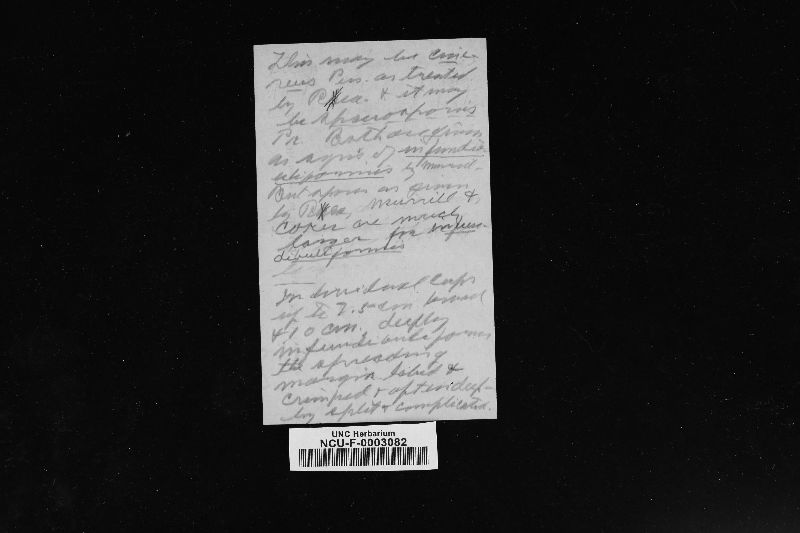 This may be cine-
reus Pers. as treated
by Rea. & it may
be sphaerosporus
Pr. Both are given
as syns of infundi-
buliformis by Murrill.
But spores as given
by Rea, Murrill &
Coker are much
larger for infun-
dibuliformis
Individual caps
up to 7.5 cm. broad
& 10 cm. deeply
infundibuliform
the spreading
margin lobed &
crimped & often deep-
ly split & complicated.
UNC Herbarium
NCU-F-0003082